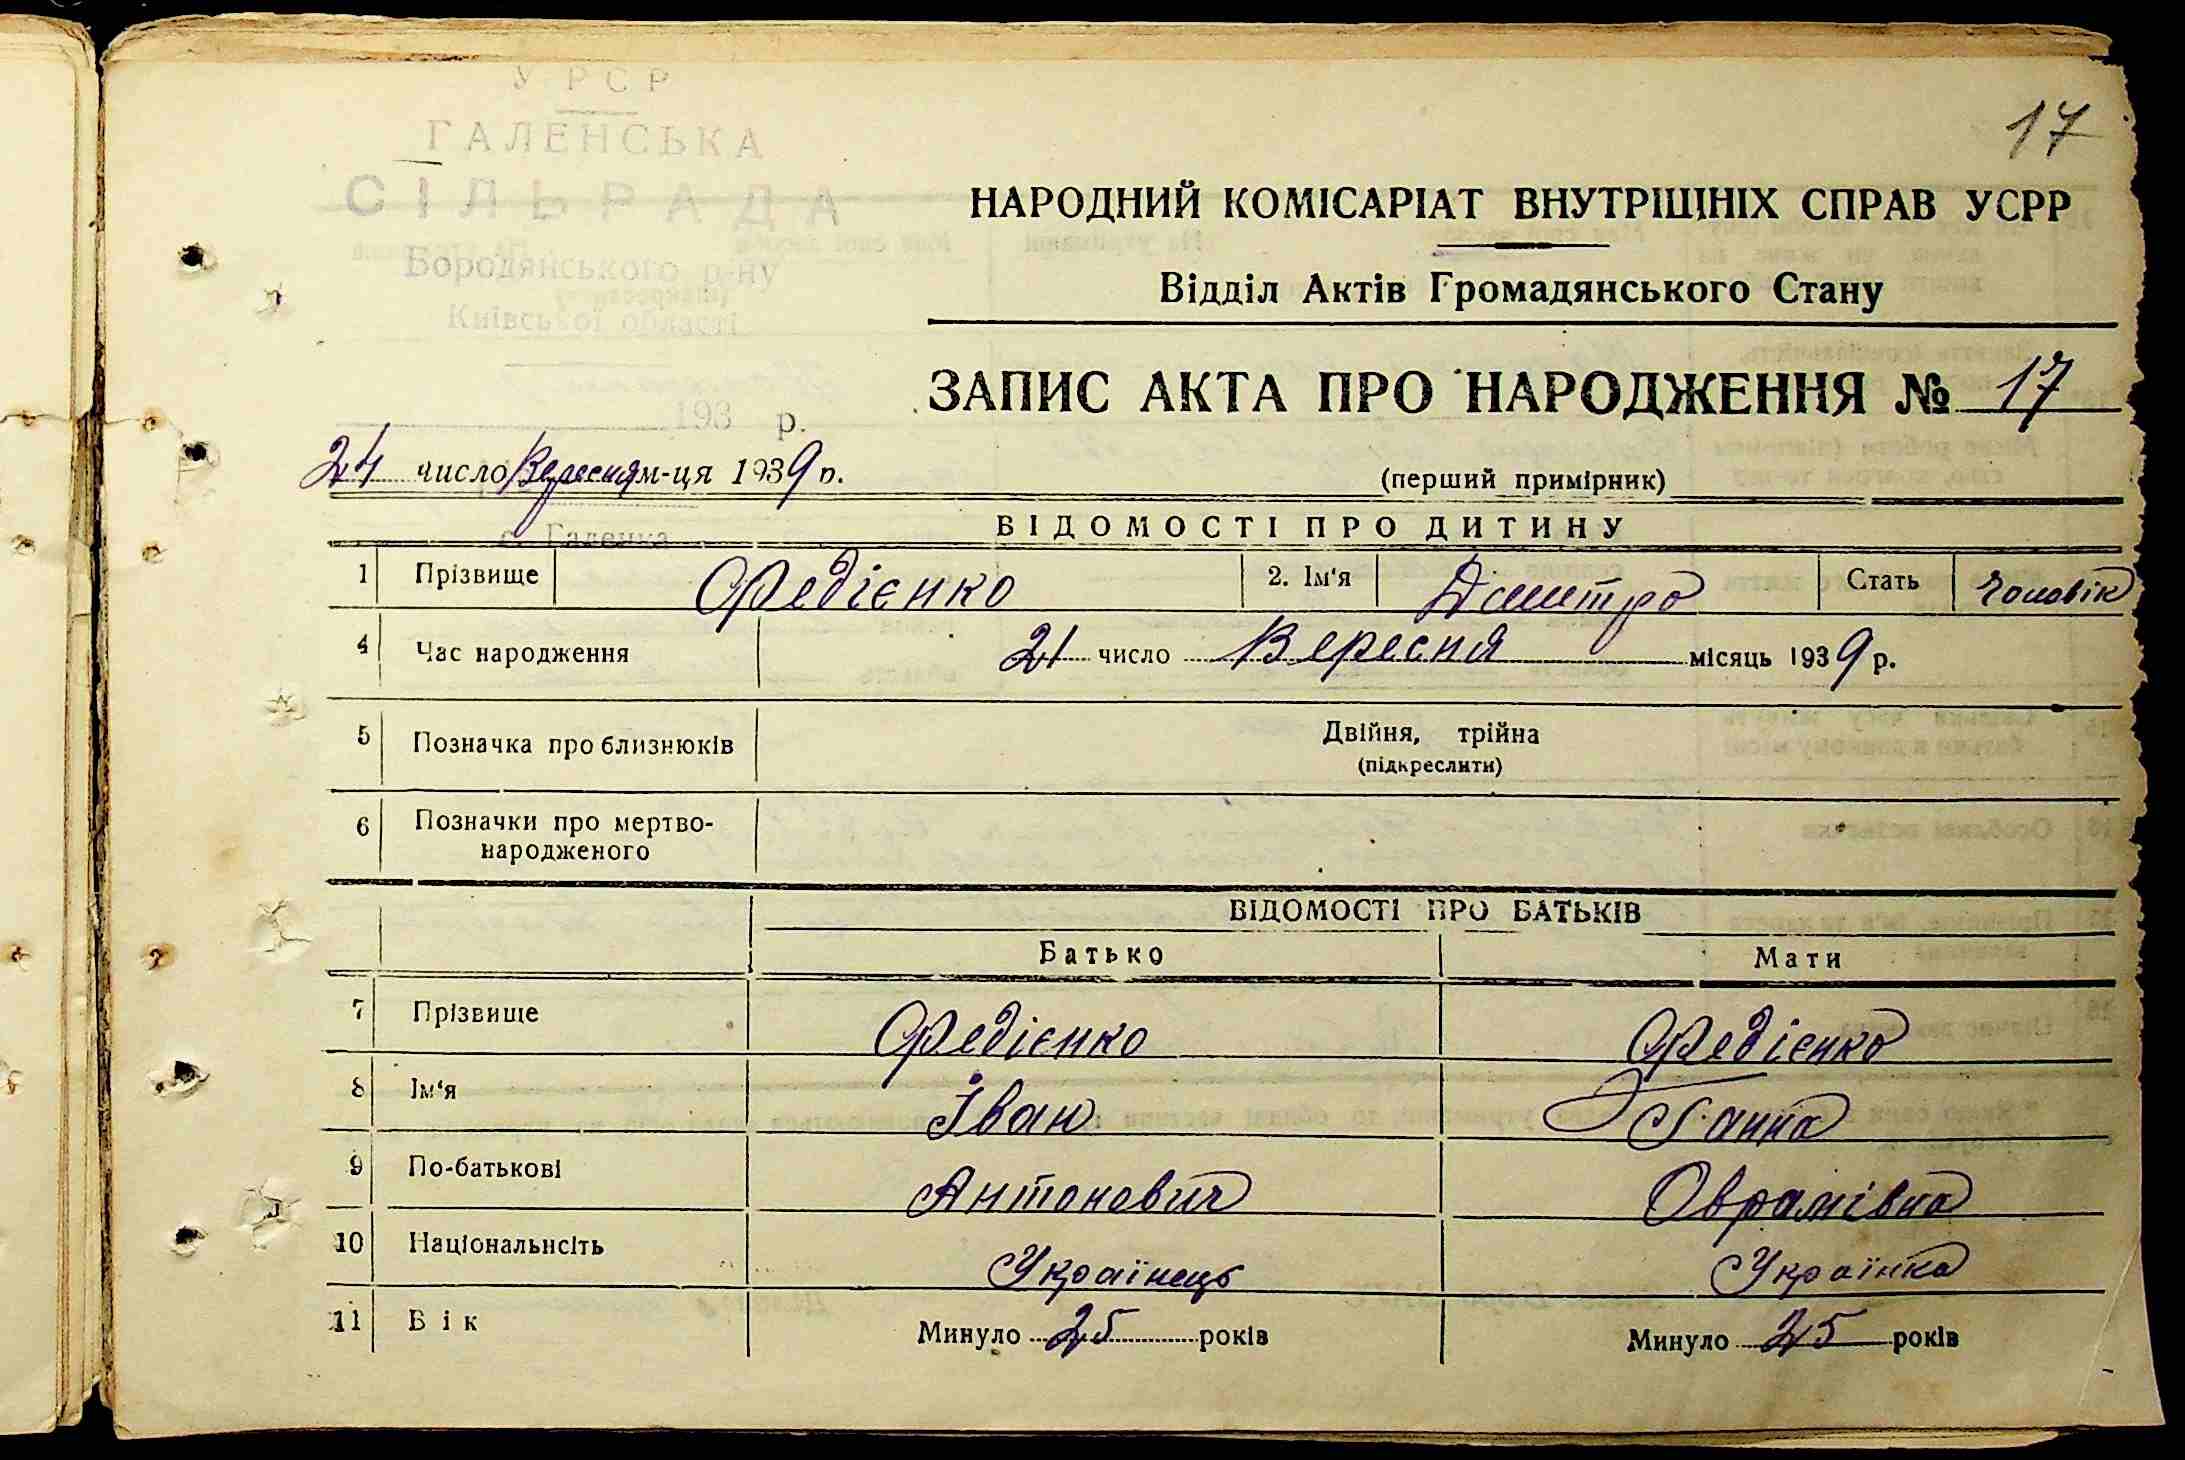 УРСР
ГАЛЕНСЬКА
СІЛЬРАДА
Бородянського р-ну
Київської області
193 р.
с. Галенка
17
НАРОДНИЙ КОМІСАРІАТ ВНУТРІШНІХ СПРАВ УСРР
Відділ Актів Громадянського Стану
ЗАПИС АКТА ПРО НАРОДЖЕННЯ № 17
24 число Вересня м-ця 1939 р.
(перший примірник)
ВІДОМОСТІ ПРО ДИТИНУ
1 Прізвище Федієнко 2. Ім'я Дмитро Стать Чоловік
4 Час народження 21 число Вересня місяць 1939 р.
5 Позначка про близнюків Двійня, трійна
(підкреслити)
6 Позначки про мертво-
народженого
ВІДОМОСТІ ПРО БАТЬКІВ
Батько Мати
7 Прізвище Федієнко Федієнко
8 Ім'я Іван Ганна
9 По-батькові Антонович Оврамівна
10 Національнсіть Українець Українка
11 Вік Минуло 25 років Минуло 25 років